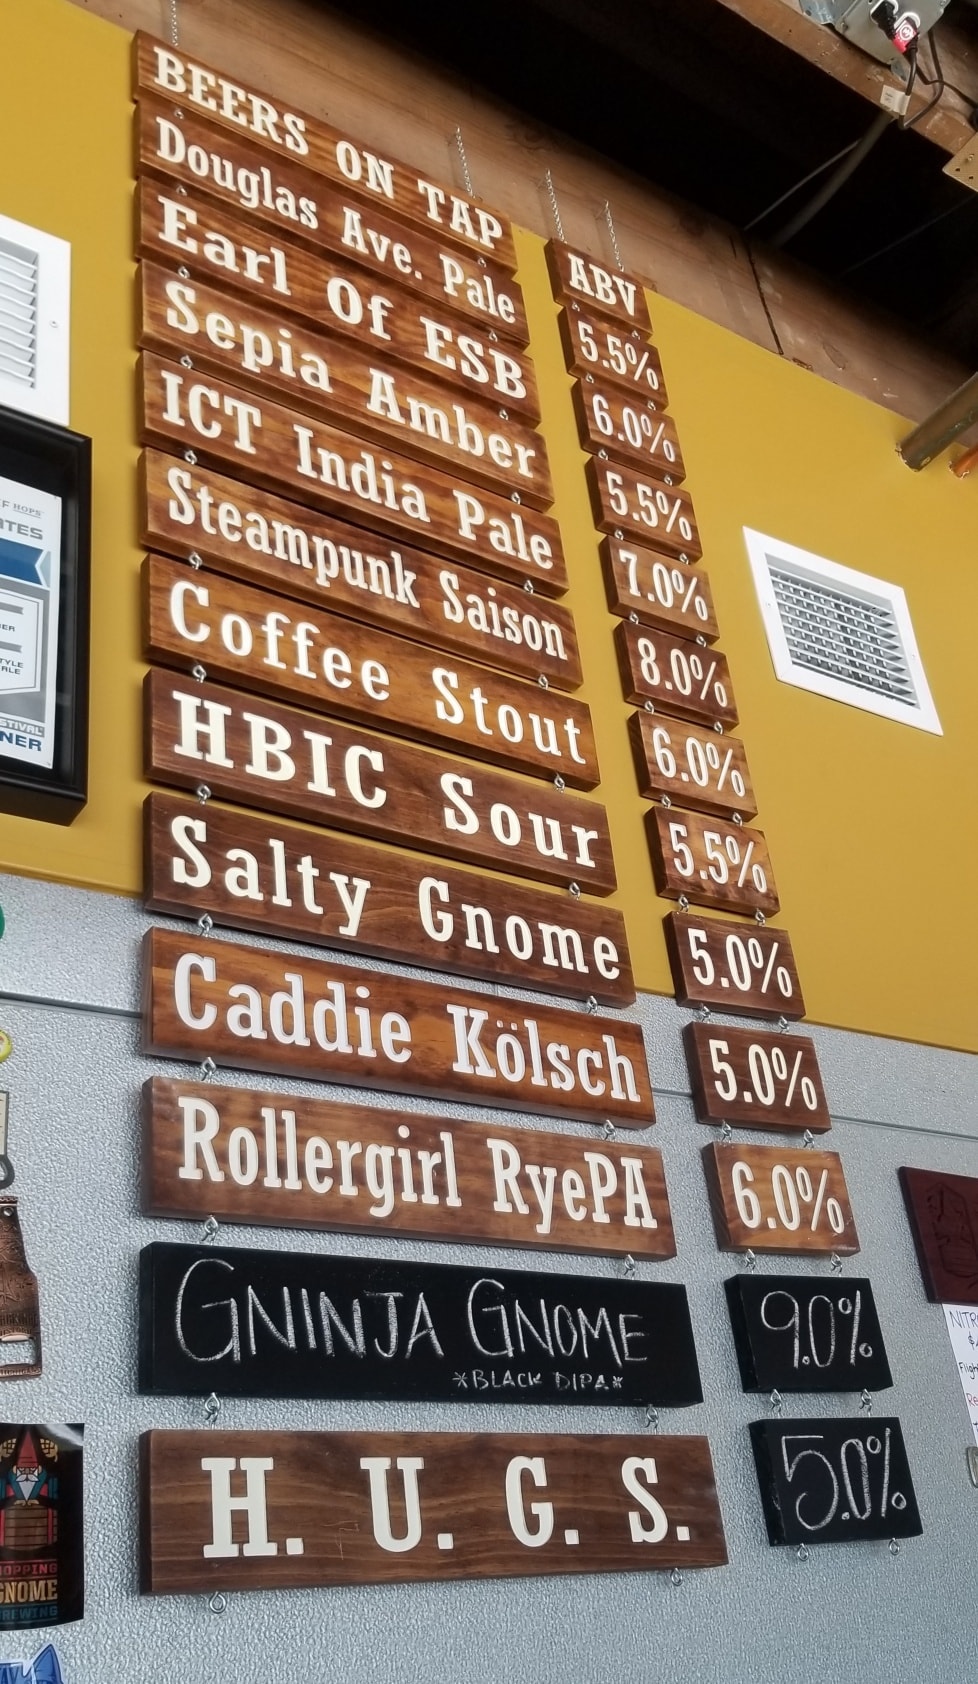 BEERS ON TAP
ABV
Douglas Ave. Pale
5.5%
Earl Of ESB
6.0%
Sepia Amber
5.5%
ICT India Pale
7.0%
Steampunk Saison
8.0%
Coffee Stout
6.0%
HBIC Sour
5.5%
Salty Gnome
5.0%
Caddie Kölsch
5.0%
Rollergirl RyePA
6.0%
GNINJA GNOME
*BLACK DIPA*
9.0%
H. U. G. S.
5.0%
HOPS
GNOME